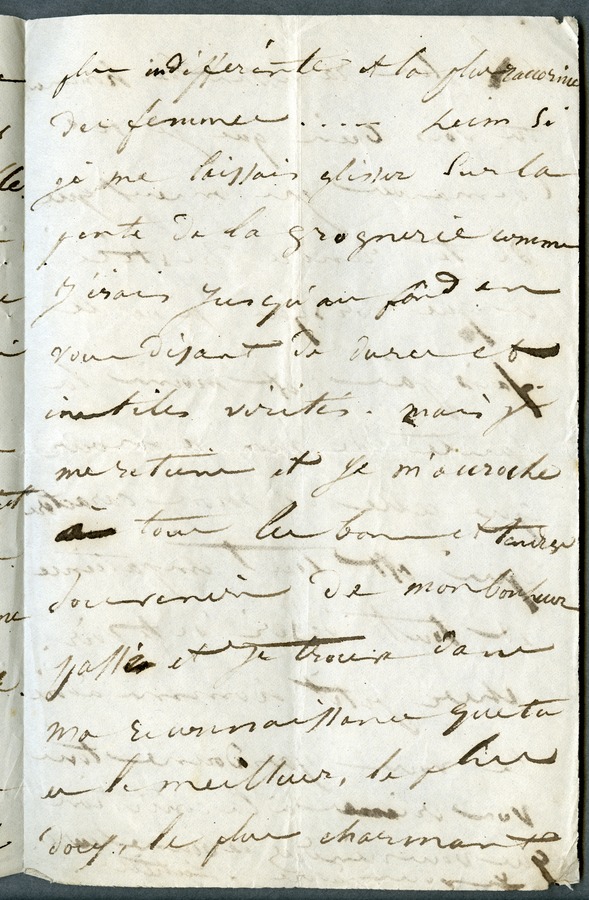 plus indifférente et la plus racornie
des femmes ..... hein si
je me laissais glisser sur la
pente de la grognerie comme
j'irais jusqu'au fond en
vous disant de dures et
inutiles vérités. mais je
me retiens et je m'accroche
a tous les bons et
souvenirs de mon bonheur
passé et je trouve dans
ma reconnaissance que tu
es le meilleur, le plus
doux, le plus charmant